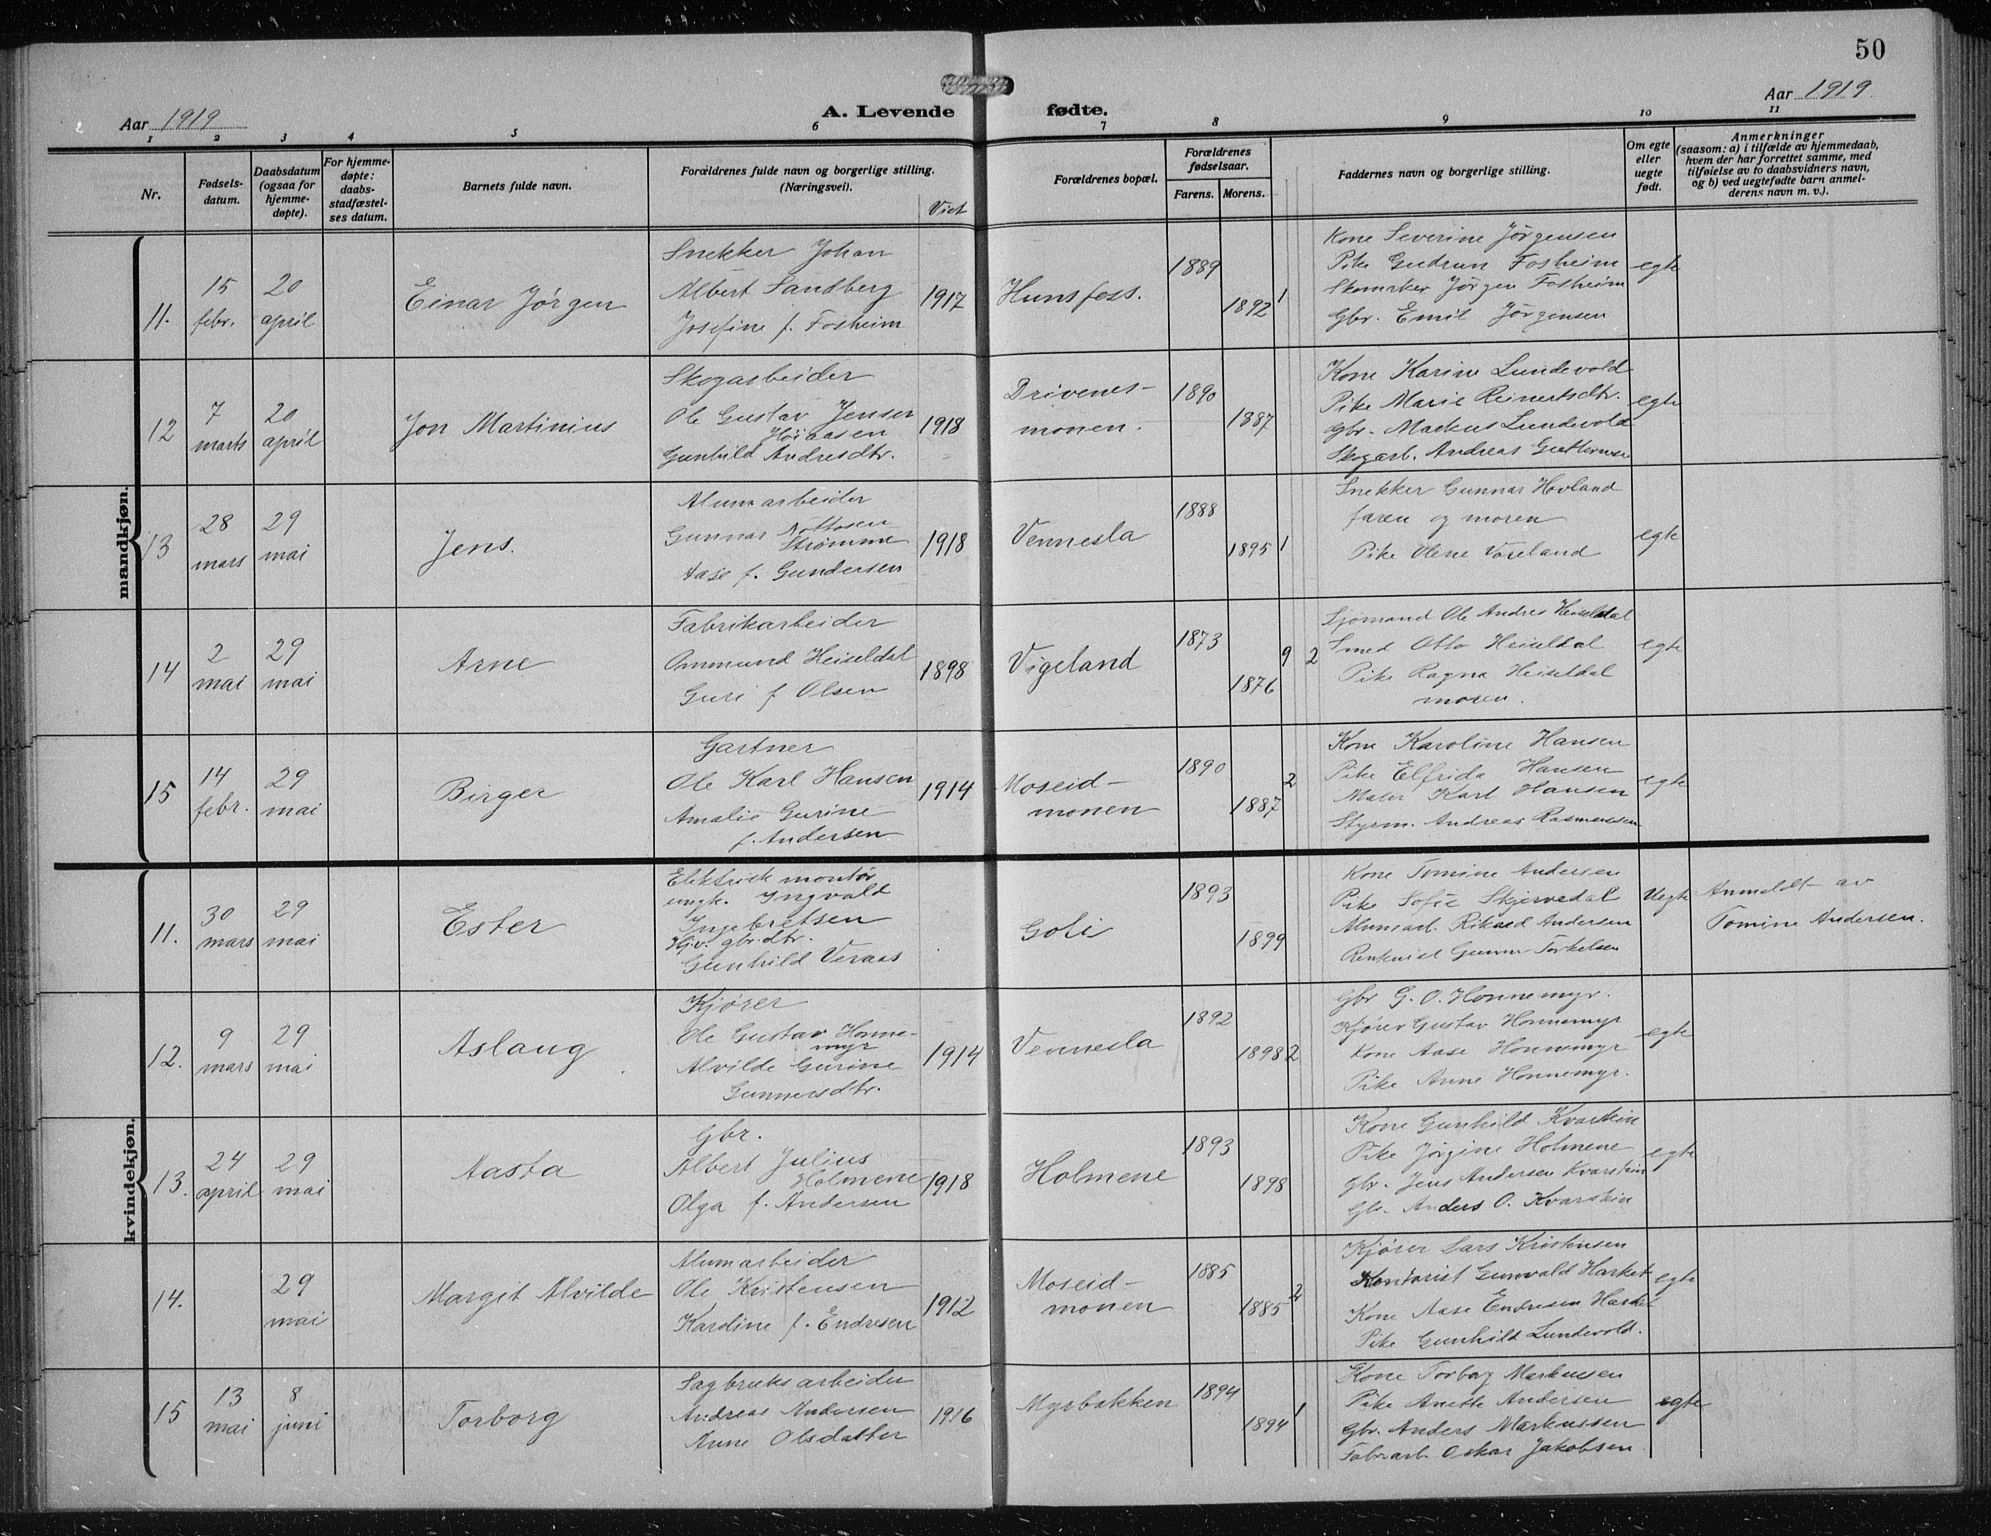 50
Aar 1919
A. Levende fødte.
Aar 1919
1 2 3 4 5 6 7 8 9 10 11
Nr.
Fødsels-
datum.
Daabsdatum
(ogsaa for
hjemme-
døpte).
For hjemme-
døpte:
daabs-
stadfæstel-
ses datum.
Barnets fulde navn.
Forældrenes fulde navn og borgerlige stilling.
(Næringsvei).
Viet
Forældrenes bopæl.
Forældrenes
fødselsaar.
Farens. Morens.
Faddernes navn og borgerlige stilling.
Om egte
eller
uegte
født.
Anmerkninger
(saasom: a) i tilfælde av hjemmedaab,
hvem der har forrettet samme, med
tilføielse av to daabsvidners navn,
og b) ved uegtefødte barn anmel-
derens navn m. v.).
mandkjøn.
11.
15
febr.
20
april
Einar Jørgen
Snekker Johan
Albert Sandberg
Josefine f. Fosheim
1917
Hunsfoss.
1889
1892
1
Kone Severine Jörgensen
Pike Gudrun Fosheim
Skomaker Jörgen Fosheim
Gbr. Emil Jörgensen
egte
12
7
marts
20
april
Jon Martinius
Skogarbeider
Ole Gustav Jensen
Høiaasen
Gunhild Andresdtr.
1918
Drivenes-
monen.
1890
1887
Kone Karine Lundevold
Pike Marie Reinertsdtr.
Gbr. Markus Lundevold
Skogarb. Andreas
egte
13
28
mars
29
mai
Jens.
Alumarbeider
Gunnar Ottosen
Strømme
Aase f. Gundersen
1918
Vennesla
1888
1895
1
Snekker Gunnar Hovland
faren og moren
Pike Olene
egte
14
2
mai
29
mai
Arne
Fabrikarbeider
Ommund Heiseldal
Guri f Olsen
1898
Vigeland
1873
1876
9 2
Sjømand Ole Andres Heiseldal
Smed Otto Heiseldal
Pike Ragna Heiseldal
moren.
egte
15
14
febr.
29
mai
Birger
Gartner
Ole Karl Hansen
Amalie Gurine
f. Andersen
1914
Moseid-
monen
1890
1887
2
Kone Karoline Hansen
Pike Elfrida Hansen
Maler Karl Hansen
Styrm. Andreas Rasmussen
egte
kvindekjøn.
11.
30
mars
29
mai
Ester
Elektrisk montør
ungk. Ingvald
Ingebretsen
Hjv. gbr.dtr.
Gunhild Veraas
Goli
1893
1899
Kone Tomine Andersen
Pike Sofie Skjervedal
Alumarb. Rikard Andersen
Gunnar Torkelsen
Uegte
Anmeldt av
Tomine Andersen.
12.
9
mars
29
mai
Aslaug
Kjører
Ole Gustav Honne-
myr
Alvilde Gurine
Gunnersdtr.
1914
Vennesla
1892
1898
2
Gbr G. O. Honnemyr.
Kjører Gustav Honnemyr
Kone Aase Honnemyr
Pike Anne Honnemyr.
egte
13.
24
april
29
mai
Aasta
Gbr.
Albert Julius
Holmene
Olga f. Andersen
1918
Holmene
1893
1898
Kone Gunhild Kvarstein
Pike Jørgine Holmene
Gbr. Jens Andersen Kvarstein
Gbr. Anders O. Kvarstein
egte
14.
29
mai
Margit Alvilde
Alumarbeider
Ole Kristensen
Karoline f. Endresen
1912
Moseid-
monen
1885
1885
2
Kjører Lars Kristensen
Kontorist Gunvald Harket
Kone Aase Endresen Harket
Pike Gunhild Lundevold.
egte
15
13
mai
8
juni
Torborg
Sagbruksarbeider
Andreas Andersen
Anne Olsdatter
1916
Myrbakken
1894
1894
1
Kone Torborg Markussen
Pike Anette Andersen
Gbr. Anders Markussen
Fabr.arb. Oskar Jakobsen.
egte